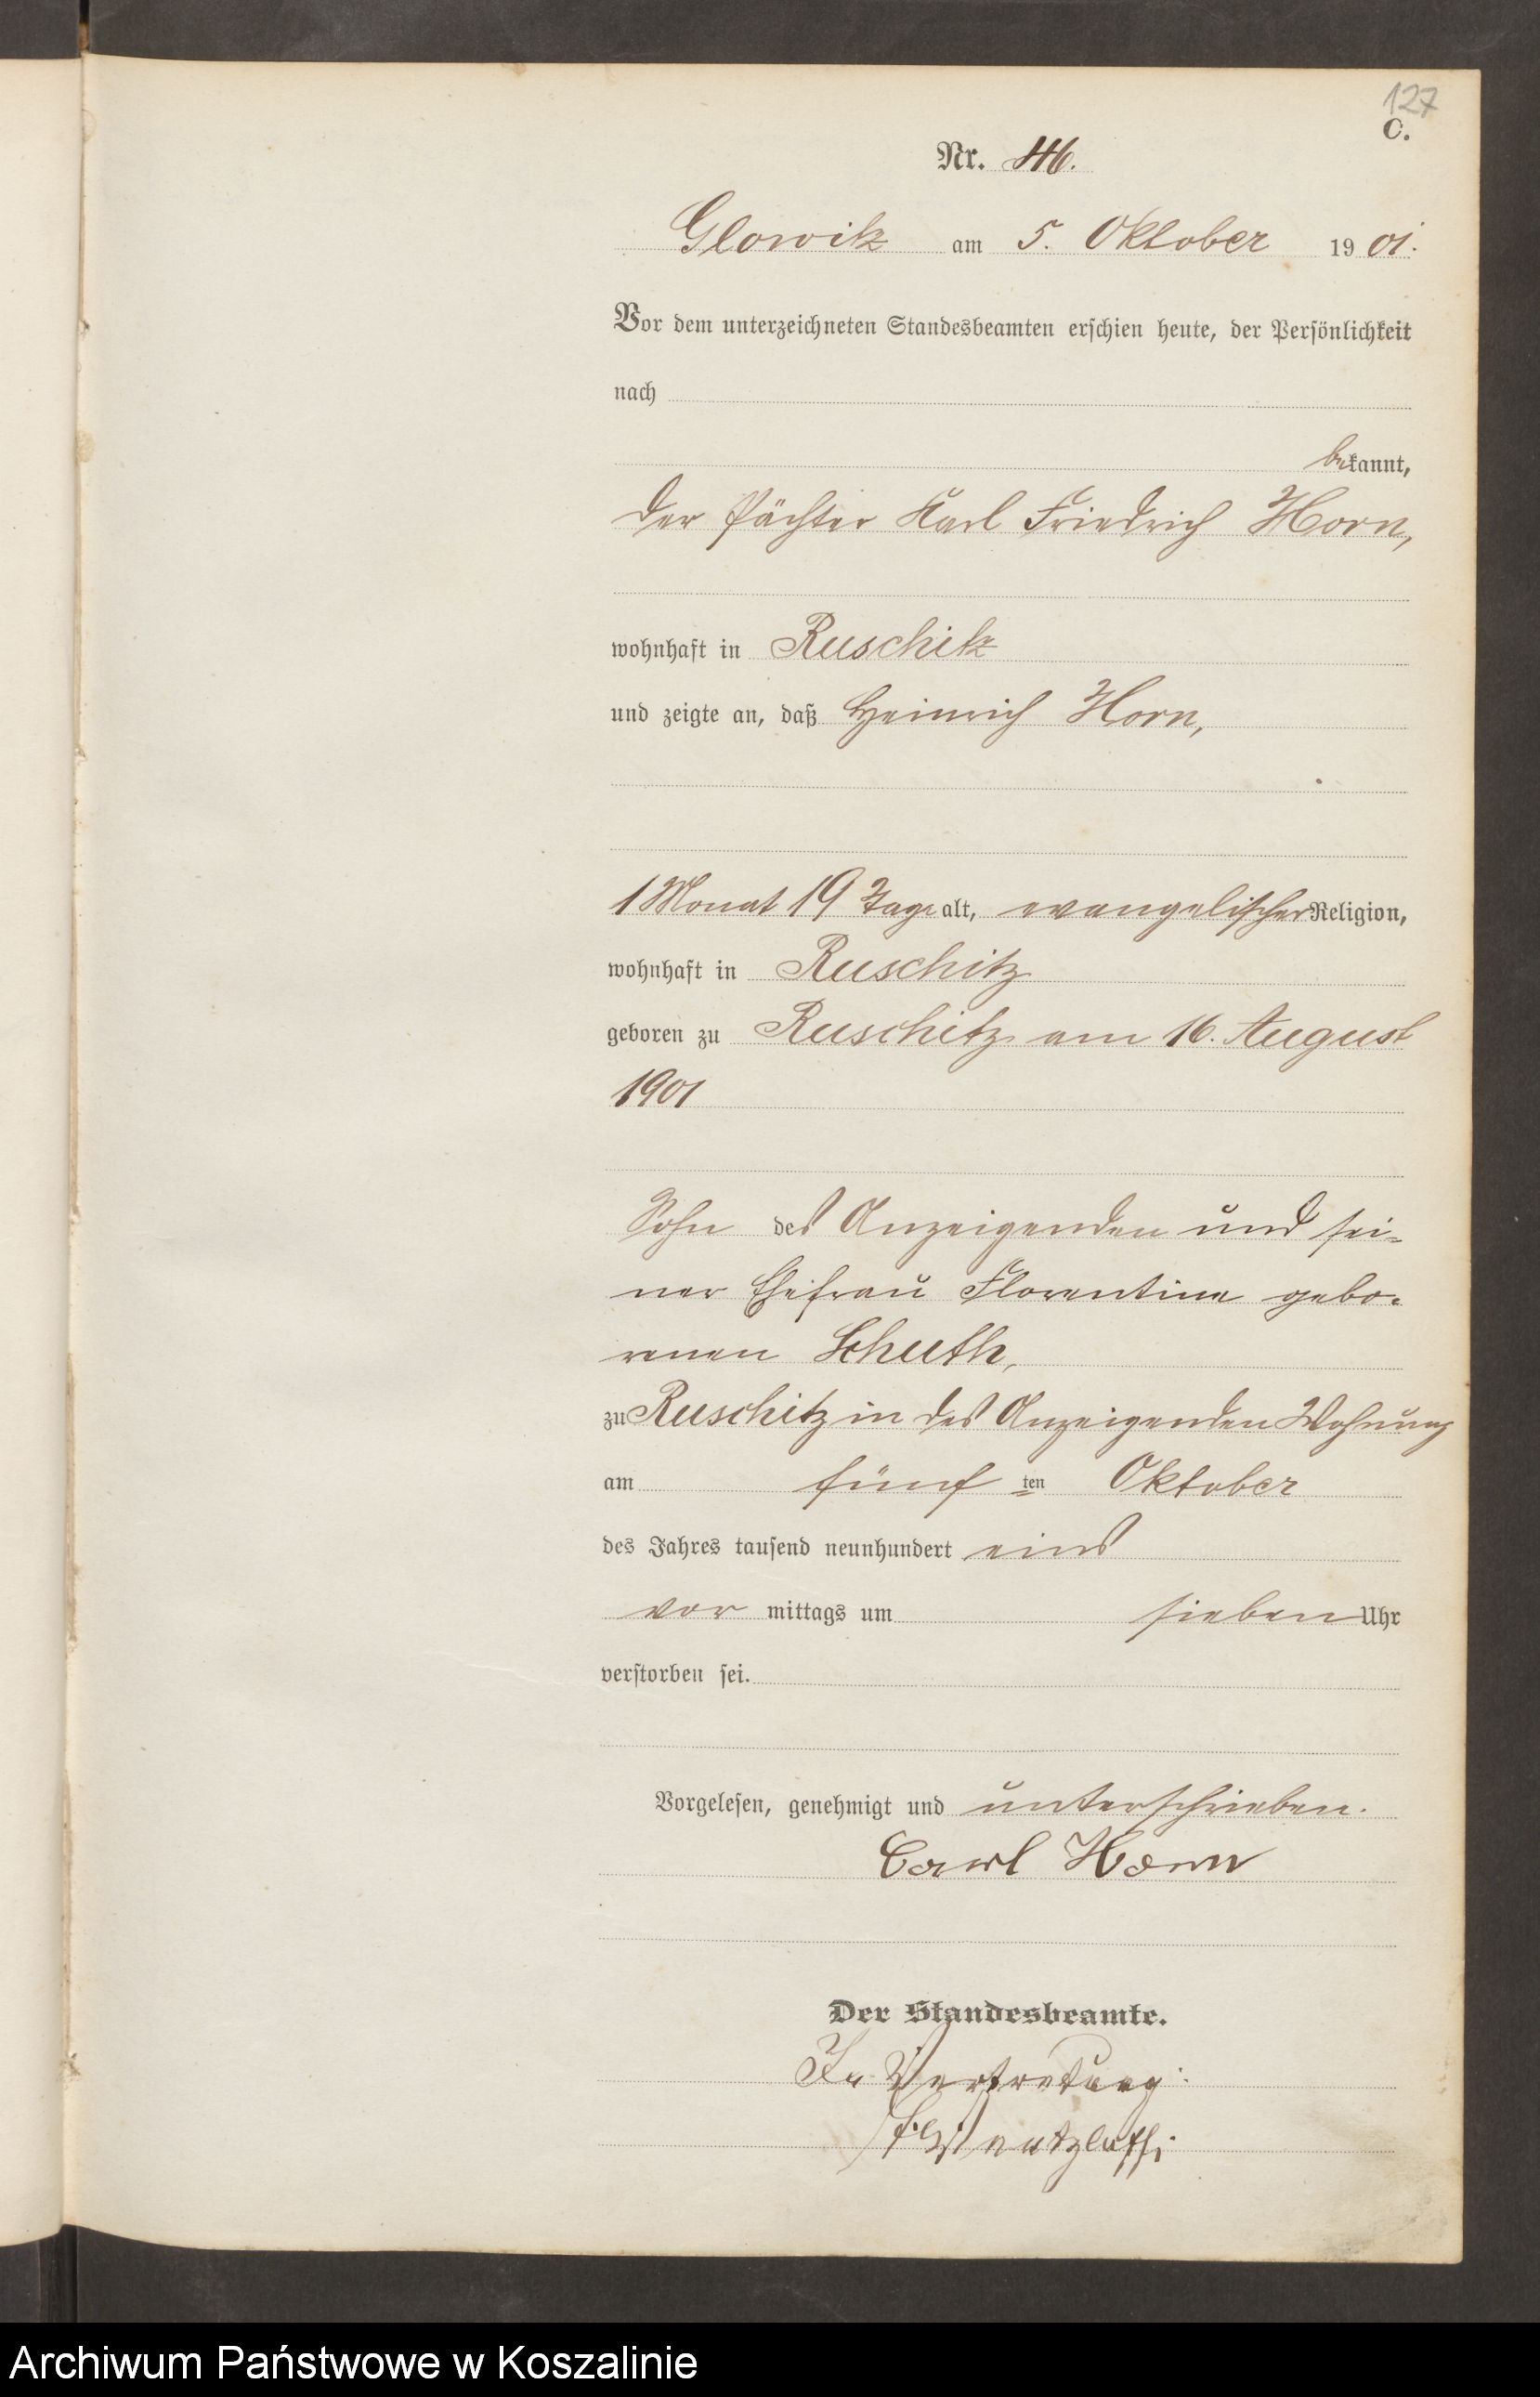 127
C.
Nr. 46.
Glowitz am 5. Oktober 1901.
Vor dem unterzeichneten Standesbeamten erschien heute, der Persönlichkeit
nach
bekannt,
der Pächter Karl Friedrich Horn,
wohnhaft in Ruschitz
und zeigte an, daß Heinrich Horn,
1 Monat 19 Tage alt, evangelischer Religion,
wohnhaft in Ruschitz
geboren zu Ruschitz am 16. August
1901
Sohn des Anzeigenden und sei-
ner Ehefrau Florentine gebo-
renen Schuth,
zu Ruschitz in des Anzeigenden Wohnung
am fünf ten Oktober
des Jahres tausend neunhundert eins
vor mittags um sieben Uhr
verstorben sei.
Vorgelesen, genehmigt und unterschrieben.
Carl Horn
Der Standesbeamte.
In Vertretung:
Archiwum Państwowe w Koszalinie